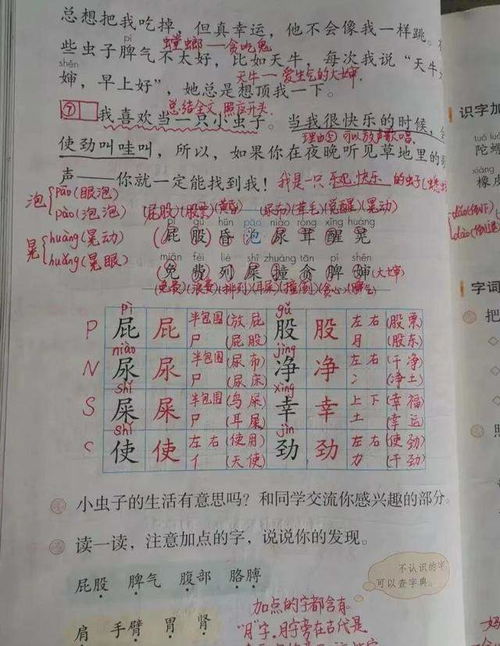 总想把我吃掉，但真幸运，他不会像我一样跳。
螳螂—贪吃鬼
些虫子脾气不太好，比如天牛，每次我说“天牛
天牛—爱生气的大婶
婶，早上好”，她总是想顶我一下。
总结全文 照应开头
⑦我喜欢当一只小虫子。当我很快乐的时候，
理由⑤可以放声歌唱
使劲叫哇叫，所以，如果你在夜晚听见草地里的
声——你就一定能找到我！
我是一只 乐观快乐 的虫子
泡 pāo(眼泡)
pào(泡泡)
晃 huàng(晃动)
huǎng(晃眼)
(屁股)(股票)(黄昏)
(尿布)(茸毛)(觉醒)(晃动)
pì gǔ hūn pāo niào róng xǐng huàng
屁 股 昏 泡 尿 茸 醒 晃
miǎn fèi liè shǐ zhuàng tān pí shěn
免 费 列 屎 撞 贪 脾 婶(大婶)
(免费)(浪费)(排列)(耳屎)(撞倒)(贪心)(脾气)
P pì 屁 屁 半包围 尸 (放屁) (屁股) gǔ 股 股 左右 月 (股票) (股东)
N niào 尿 尿 半包围 尸 (尿布) (尿床) jìng 净 净 左右 冫 (干净) (净土)
S shǐ 屎 屎 半包围 尸 (鸟屎) (耳屎) xìng 幸 幸 上下 土 (幸福) (幸运)
shǐ 使 使 左右 亻 (使用) (天使) jìn 劲 劲 左右 力 (使劲) (干劲)
小虫子的生活有意思吗？和同学交流你感兴趣的部分。
读一读，注意加点的字，说说你的发现。
不认识的字
可以查字典。
屁股 脾气 腹部 胳膊
肩 手臂 胃 肾
加点的字都含有
“月”字，月字旁在古代是
识字加
橡
字词
把